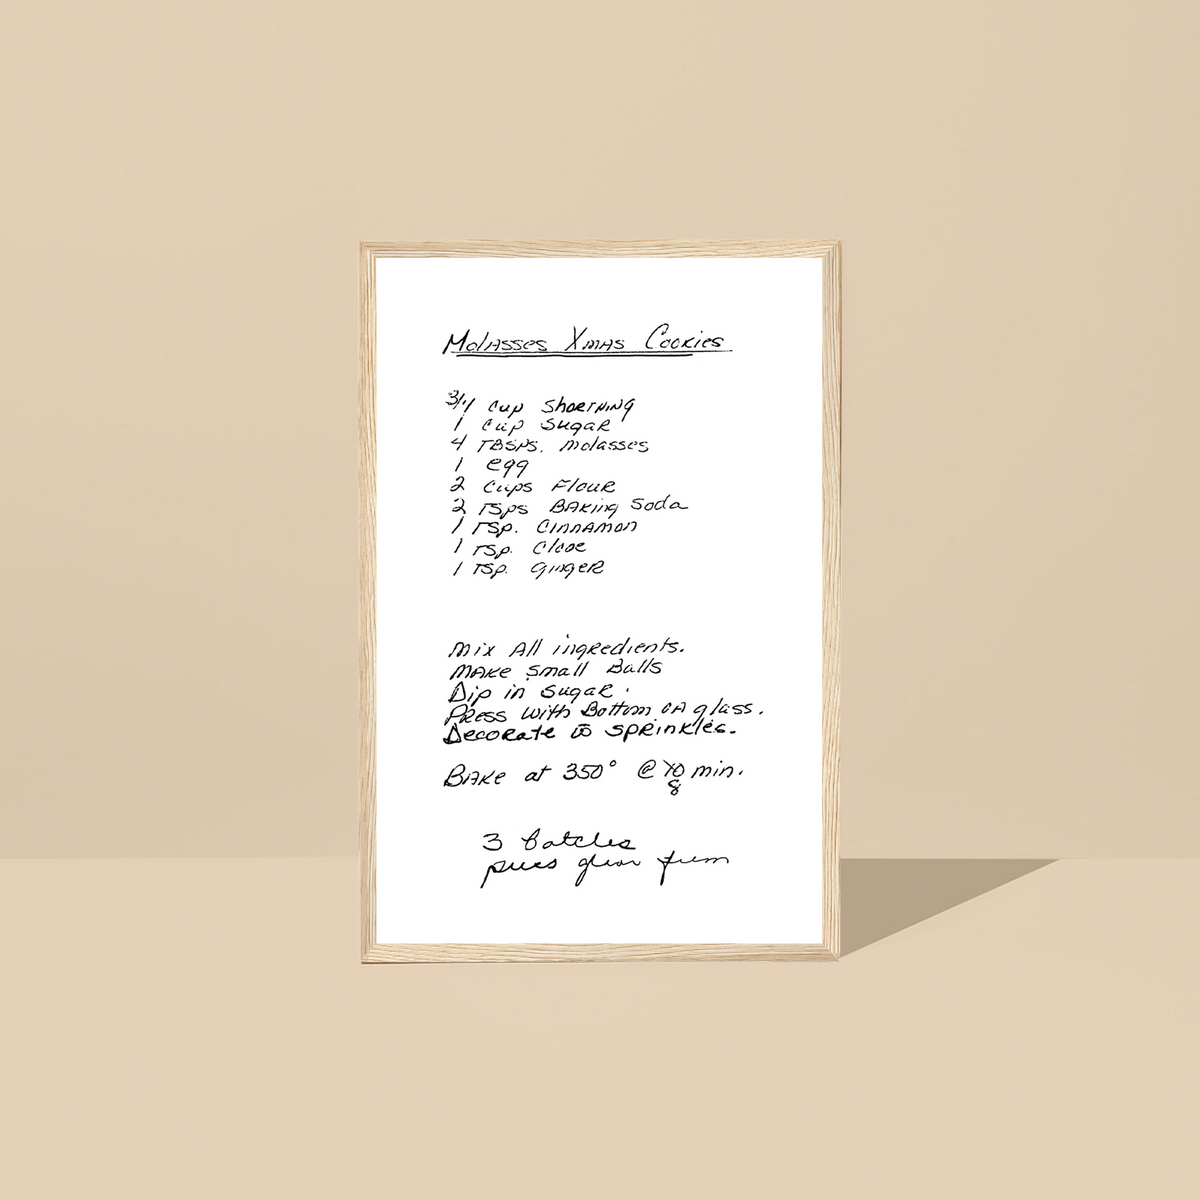 Molasses Xmas Cookies
3/4 Cup Shortning
1 Cup Sugar
4 TBSPS. Molasses
1 egg
2 Cups Flour
2 Tsps Baking Soda
1 Tsp. Cinnamon
1 Tsp. Clove
1 Tsp. Ginger
Mix All ingredients.
Make Small Balls
Dip in Sugar.
Press with Bottom of A glass.
Decorate w sprinkles.
Bake at 350° @ 10 min.
8
3 batches